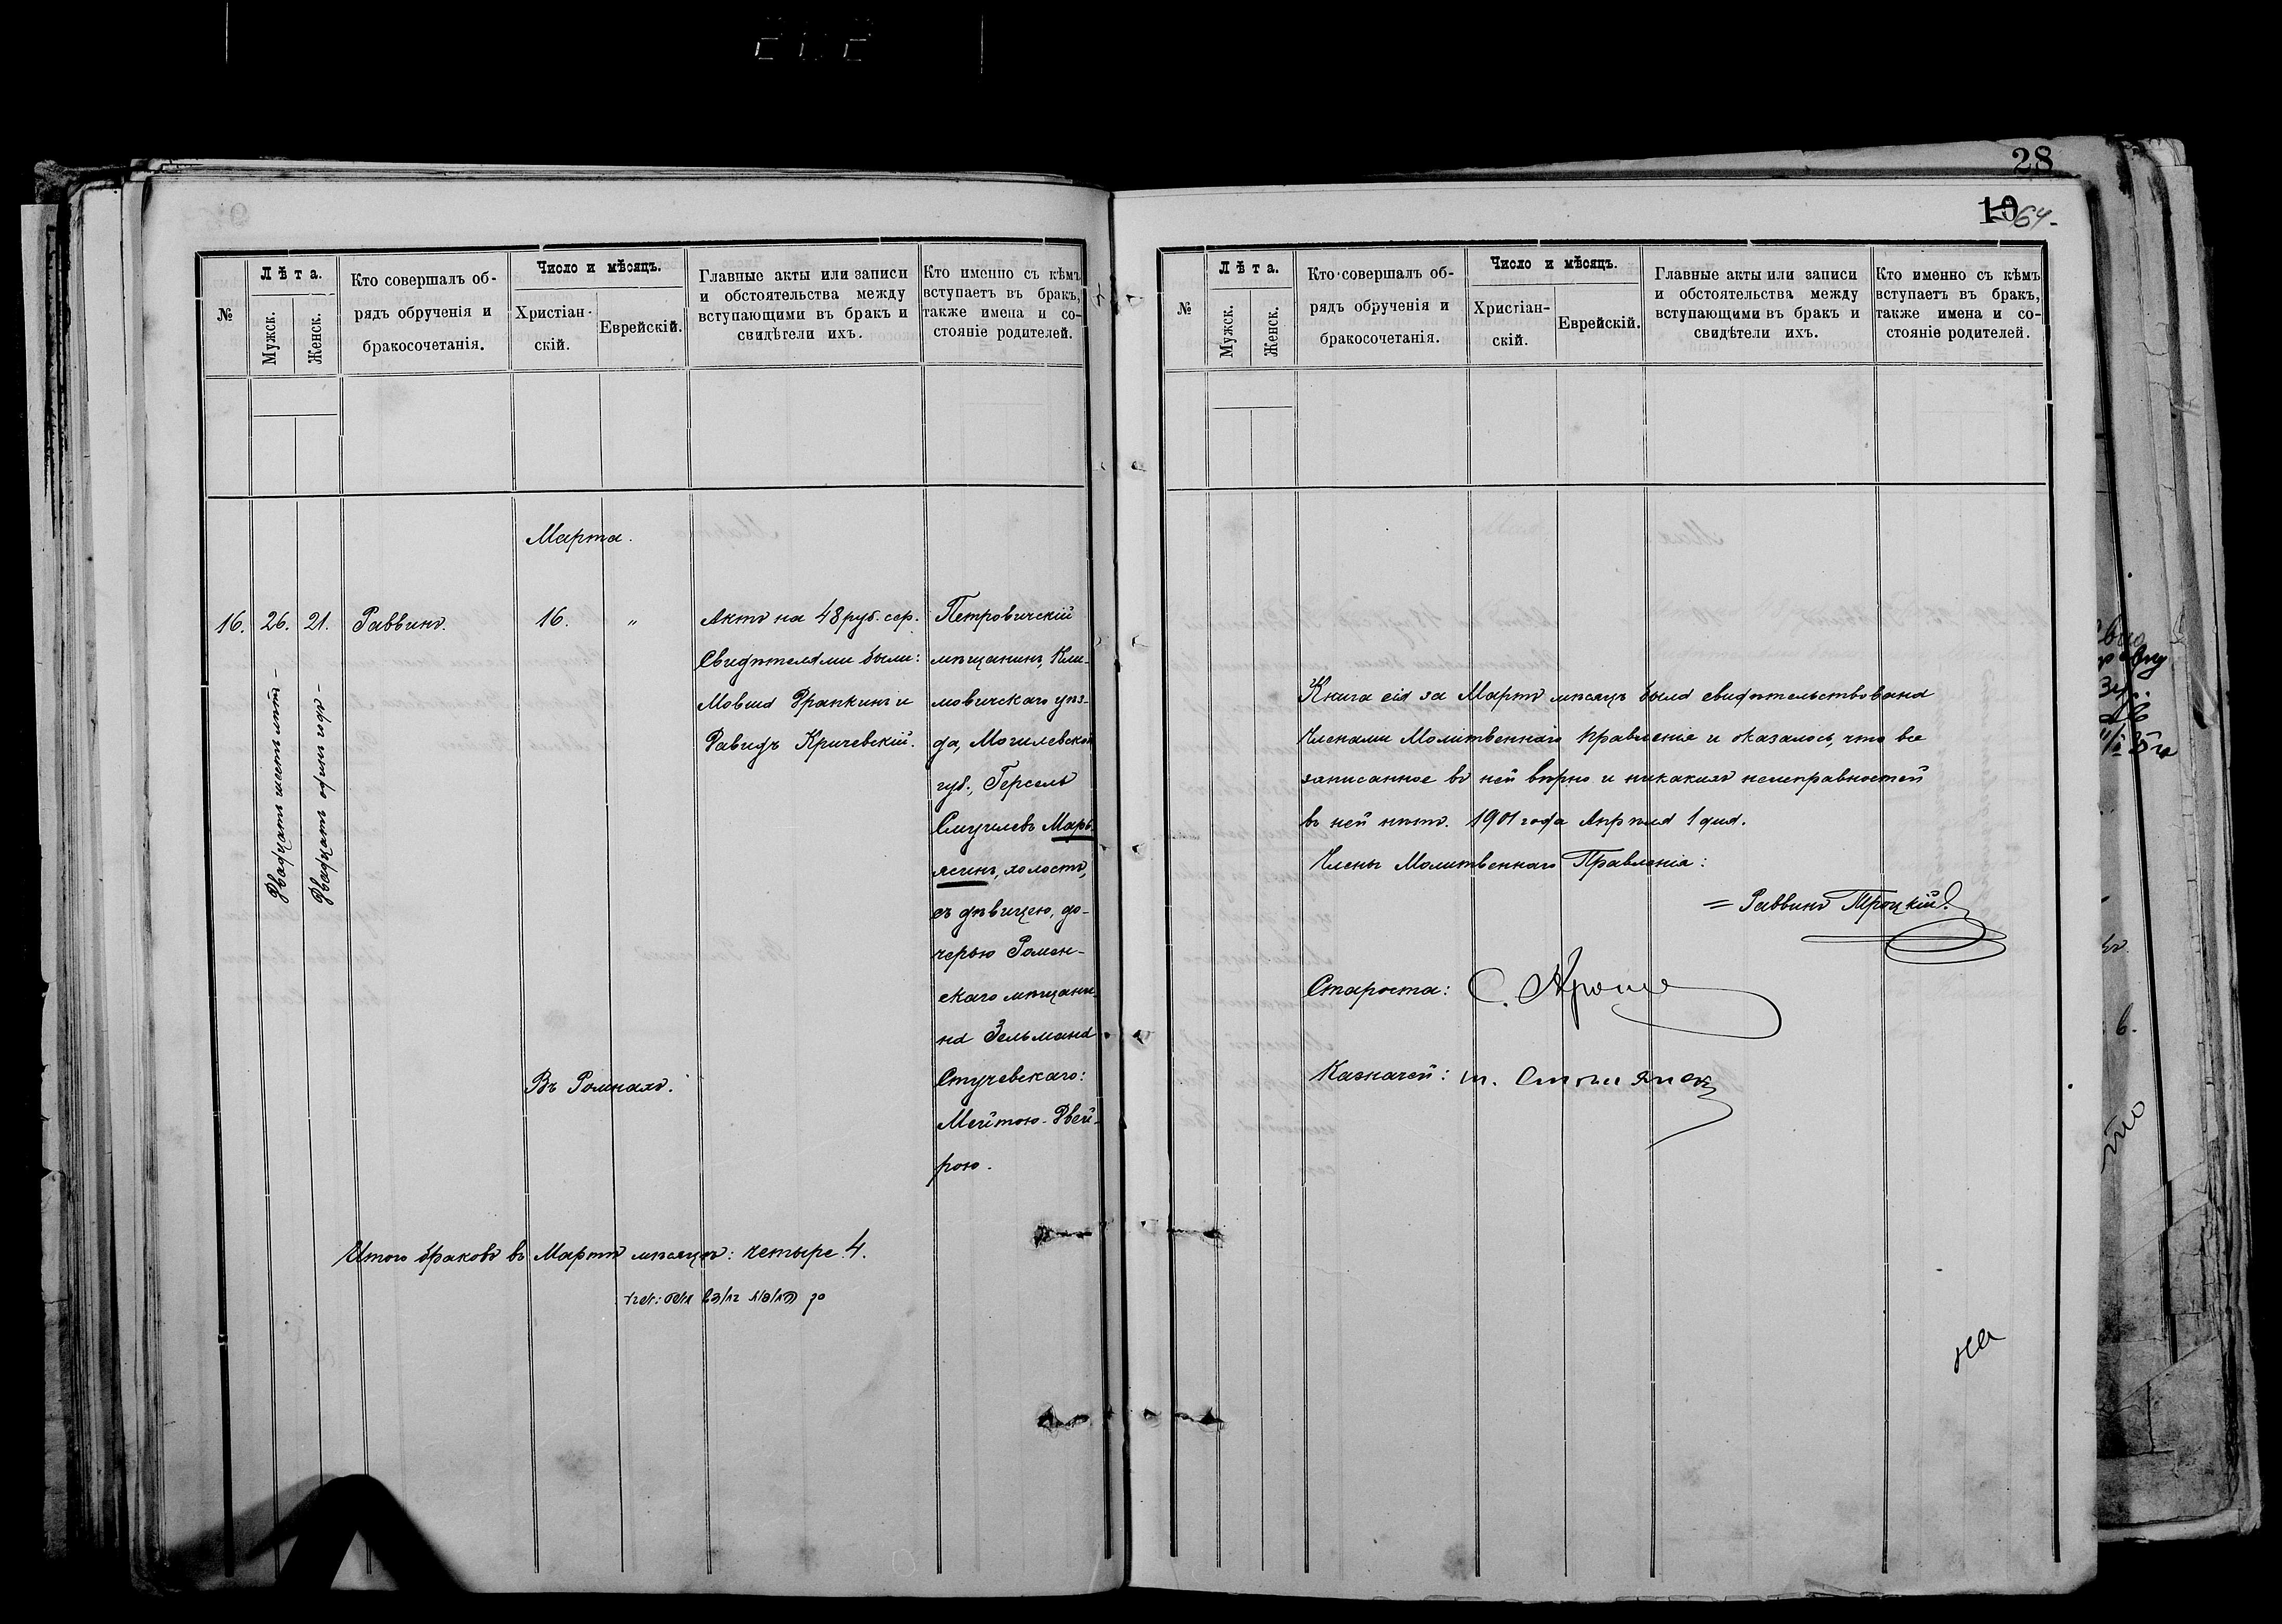 28
10 64.
№
Лѣта.
Мужск.
Женск.
Кто совершалъ об-
рядъ обрученія и
бракосочетанія.
Число и мѣсяцъ.
Христіан-
скій.
Еврейскій.
Главные акты или записи
и обстоятельства между
вступающими въ бракъ и
свидѣтели ихъ.
Кто именно съ кѣмъ
вступаетъ въ бракъ,
также имена и со-
стояніе родителей.
Марта.
16.
26.
Двадцать шесть лѣтъ
21.
Двадцать одинъ годъ
Раввинъ.
16.
"
Въ Ромнахъ.
Актъ на 48 руб. сер.
Свидѣтелями были:
Мовша Франкинъ и
Давидъ Кричевскій.
Петровичскій
мѣщанинъ, Кли-
мовичскаго уѣз-
да, Могилевской
губ., Герсель
Шмуилевъ Марь-
ясинъ, холостъ,
съ дѣвицею, до-
черью Ромен-
скаго мѣщани-
на Зельмана
Стучевскаго:
Мейтою-Двей-
рою.
Итого браковъ въ Мартѣ мѣсяцѣ: четыре 4.
№
Лѣта.
Мужск.
Женск.
Кто совершалъ об-
рядъ обрученія и
бракосочетанія.
Число и мѣсяцъ.
Христіан-
скій.
Еврейскій.
Главные акты или записи
и обстоятельства между
вступающими въ бракъ и
свидѣтели ихъ.
Кто именно съ кѣмъ
вступаетъ въ бракъ,
также имена и со-
стояніе родителей.
Книга сія за Мартъ мѣсяцъ была свидѣтельствована
Членами Молитвеннаго Правленія и оказалось, что все
записанное въ ней вѣрно и никакихъ неисправностей
въ ней нѣтъ. 1901 года Апрѣля 1 дня.
Члены Молитвеннаго Правленія:
= Раввинъ Троцкій.
Староста: С.
Казначей:
на